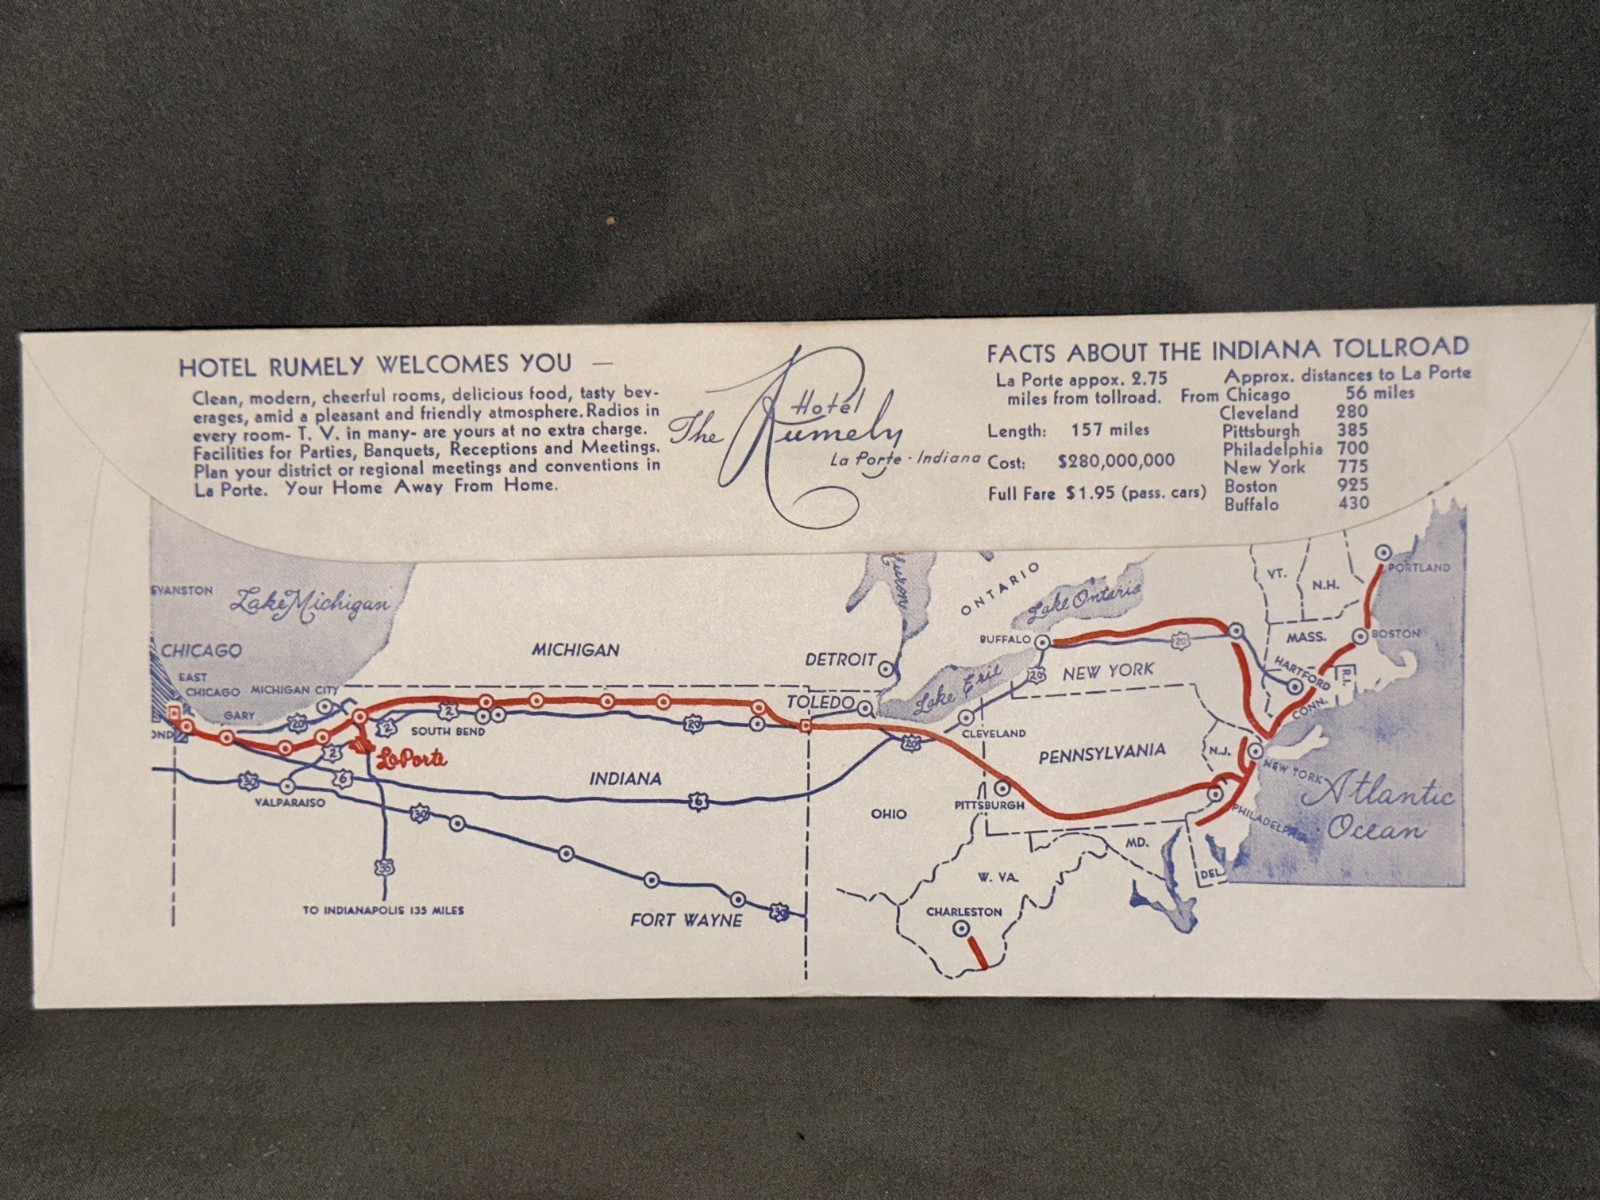 HOTEL RUMELY WELCOMES YOU —
Clean, modern, cheerful rooms, delicious food, tasty bev-
erages, amid a pleasant and friendly atmosphere. Radios in
every room- T. V. in many- are yours at no extra charge.
Facilities for Parties, Banquets, Receptions and Meetings.
Plan your district or regional meetings and conventions in
La Porte. Your Home Away From Home.
The Hotel Rumely
La Porte - Indiana
FACTS ABOUT THE INDIANA TOLLROAD
La Porte appox. 2.75
miles from tollroad.
Length: 157 miles
Cost: $280,000,000
Full Fare $1.95 (pass. cars)
Approx. distances to La Porte
From Chicago 56 miles
Cleveland 280
Pittsburgh 385
Philadelphia 700
New York 775
Boston 925
Buffalo 430
EVANSTON
Lake Michigan
CHICAGO
EAST
CHICAGO
MICHIGAN CITY
GARY
OND
20
2
2
2
SOUTH BEND
20
La Porte
6
30
VALPARAISO
30
35
TO INDIANAPOLIS 135 MILES
MICHIGAN
INDIANA
6
FORT WAYNE
30
Huron
DETROIT
TOLEDO
Lake Erie
20
CLEVELAND
20
OHIO
ONTARIO
Lake Ontario
BUFFALO
20
NEW YORK
PENNSYLVANIA
PITTSBURGH
W. VA.
CHARLESTON
MD.
DEL.
N.J.
VT.
N.H.
MASS.
HARTFORD
CONN.
R.I.
PORTLAND
BOSTON
NEW YORK
PHILADELPHIA
Atlantic
Ocean